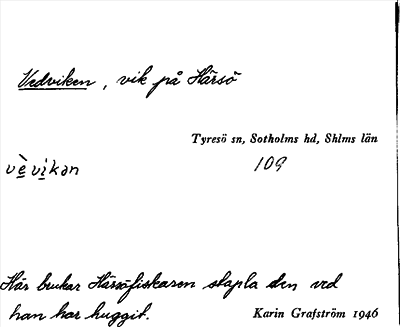 Vedviken, vik på Härsö
Tyresö sn, Sotholms hd, Shlms län
109
vè̱vi̱kən
Här brukar Härsöfiskaren stapla den ved
han har huggit.
Karin Grafström 1946